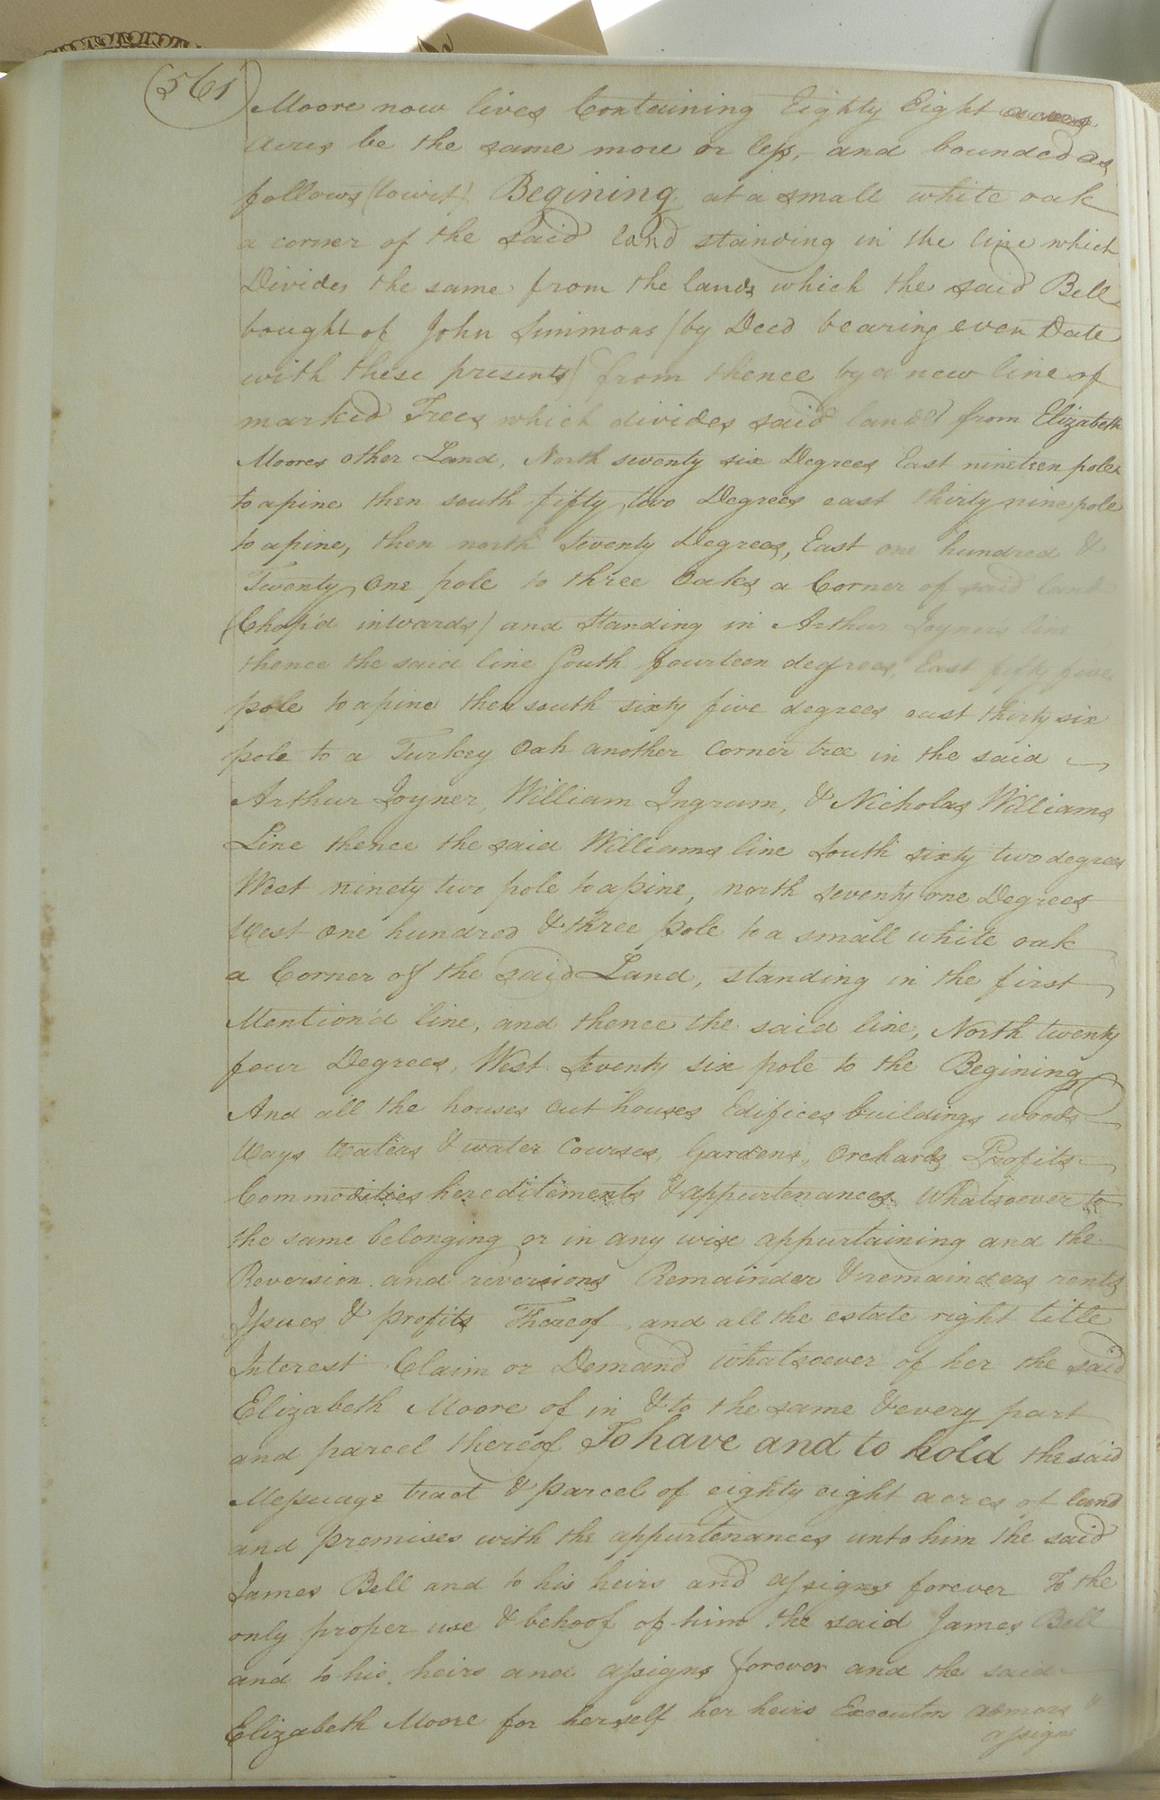 561
Moore now lives Containing Eighty Eight acres
acres be the same more or less, and bounded as
follows (towit) Begining at a small white oak
a corner of the said land standing in the line which
Divides the same from the lands which the said Bell
bought of John Simmons (by Deed bearing even Date
with these presents) from thence by a new line of
marked Trees which divides said land from Elizabeth
Moores other Land, North seventy six Degrees East nineteen poles
to a pine then south fifty two Degrees east thirty nine pole
to a pine, then north seventy Degrees, East one hundred &
Twenty One pole to three Oaks a Corner of said land
(Chop'd inwards) and standing in Arthur Joyner's line
thence the said line South fourteen degrees, East fifty five
pole to a pine then south sixty five degrees east thirty six
pole to a Turkey Oak another corner tree in the said
Arthur Joyner, William Ingram, & Nicholas Williams
Line thence the said Williams line South sixty two degrees
West ninety two pole to a pine, north seventy one Degrees
West One hundred & three pole to a small white oak
a Corner of the said Land, standing in the first
Mention'd line, and thence the said line, North twenty
four Degrees, West seventy six pole to the Begining
And all the houses out houses Edifices buildings woods
Ways Waters & water Courses, Gardens, Orchards Profits
Commodities hereditements & appurtenances Whatsoever to
the same belonging or in any wise appurtaining and the
Reversion and reversions Remainder & remainders rents
Issues & profits Thereof and all the estate right title
Interest Claim or Demand whatsoever of her the said
Elizabeth Moore of in & to the same & every part
and parcel thereof To have and to hold the said
Messuage tract & parcel of eighty eight acres of land
and premises with the appurtenances unto him the said
James Bell and to his heirs and assigns forever To the
only proper use & behoof of him the said James Bell
and to his heirs and assigns forever and the said
Elizabeth Moore for herself her heirs Executors admors
assigns